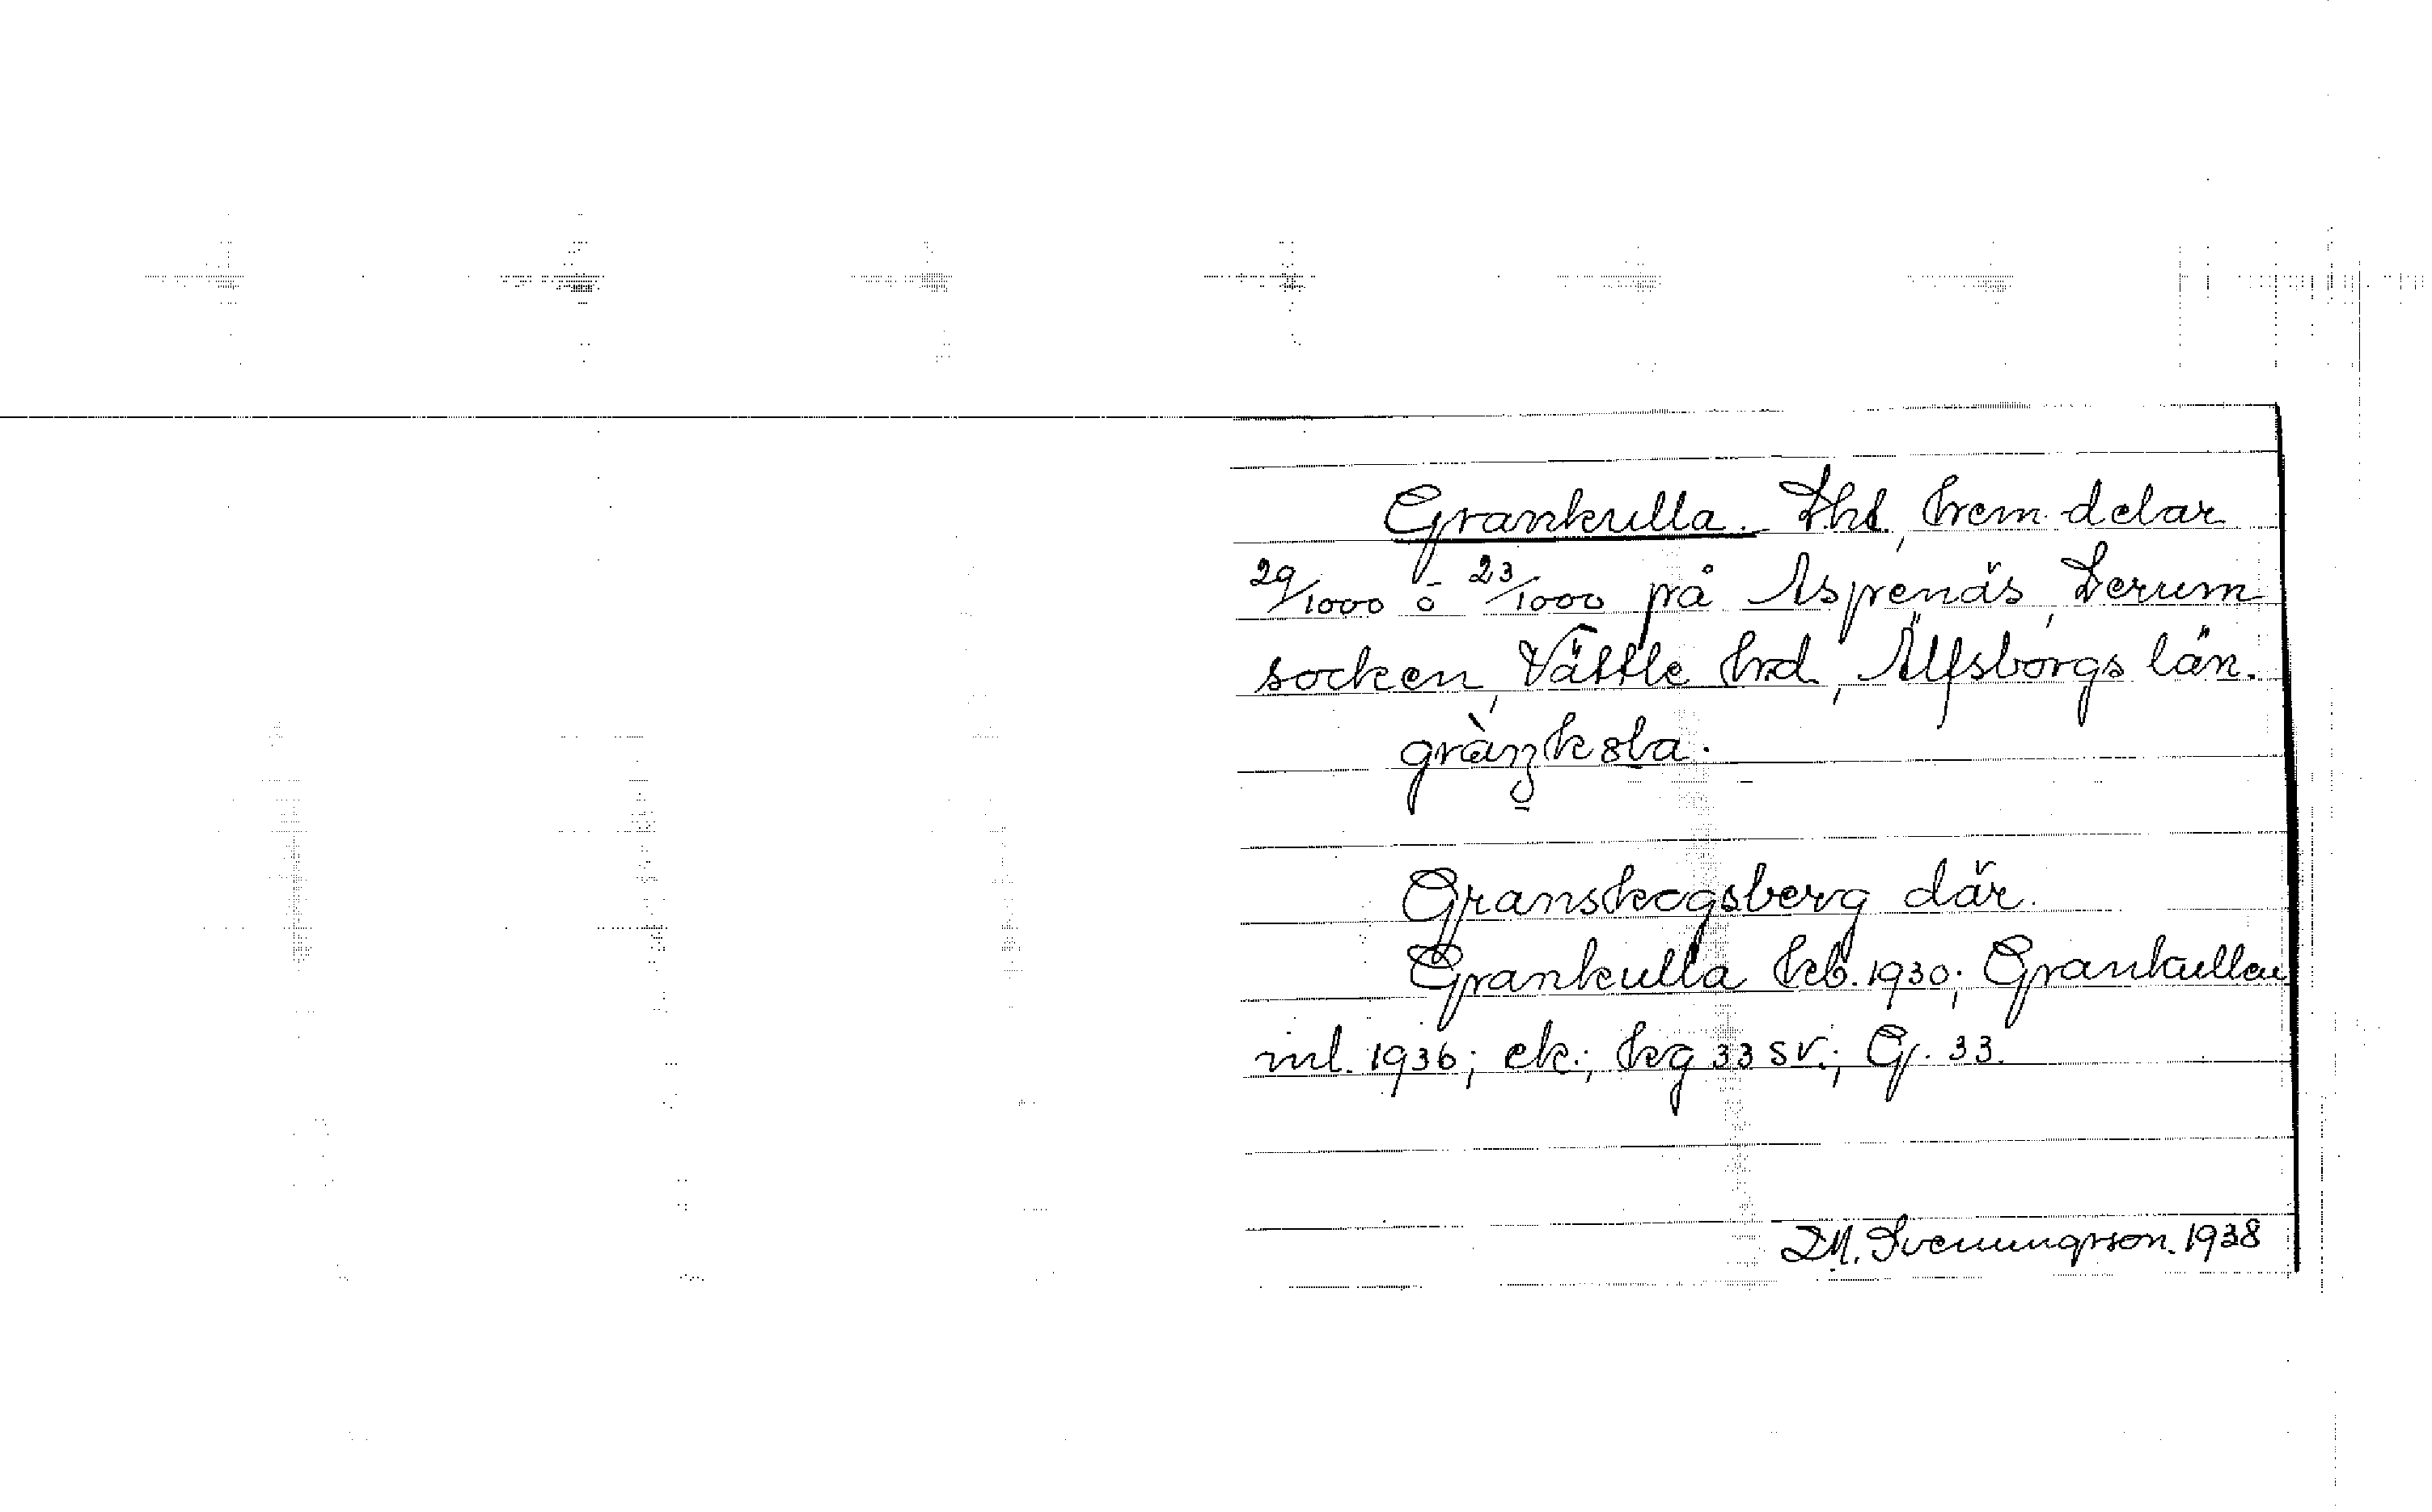 Grankulla. Lht, hem. delar
29/1000 o 23/1000 på Aspenäs, Lerum
socken, Vättle hrd, Älfsborgs län.
Granskogsberg där.
Grankulla kb. 1930; Grankullen
ml. 1936; ek.; kg 33 sv.; G. 33.
Svenningsson. 1938